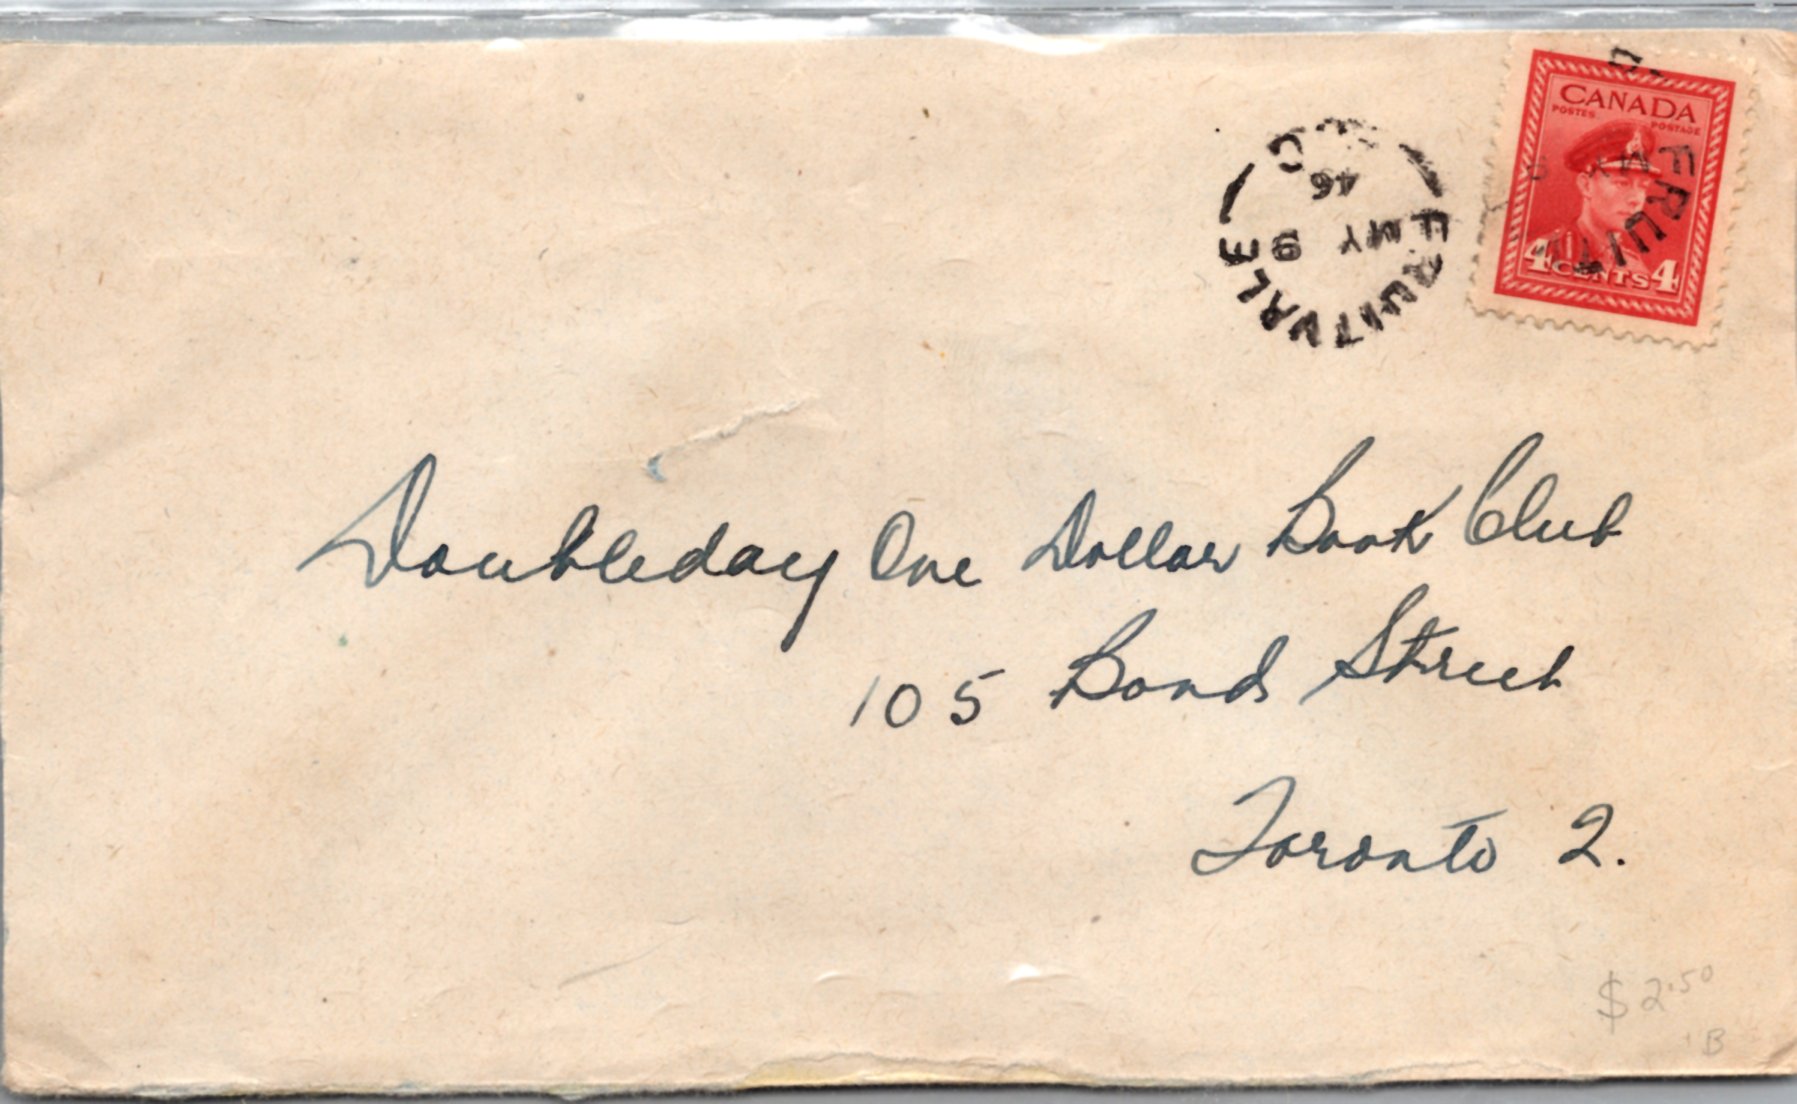 CANADA
POSTES POSTAGE
4 CENTS 4
FRUIT
MY 9
FRUITVALE
MY 9
46
Doubleday One Dollar Book Club
105 Bond Street
Toronto 2.
$2.50
B